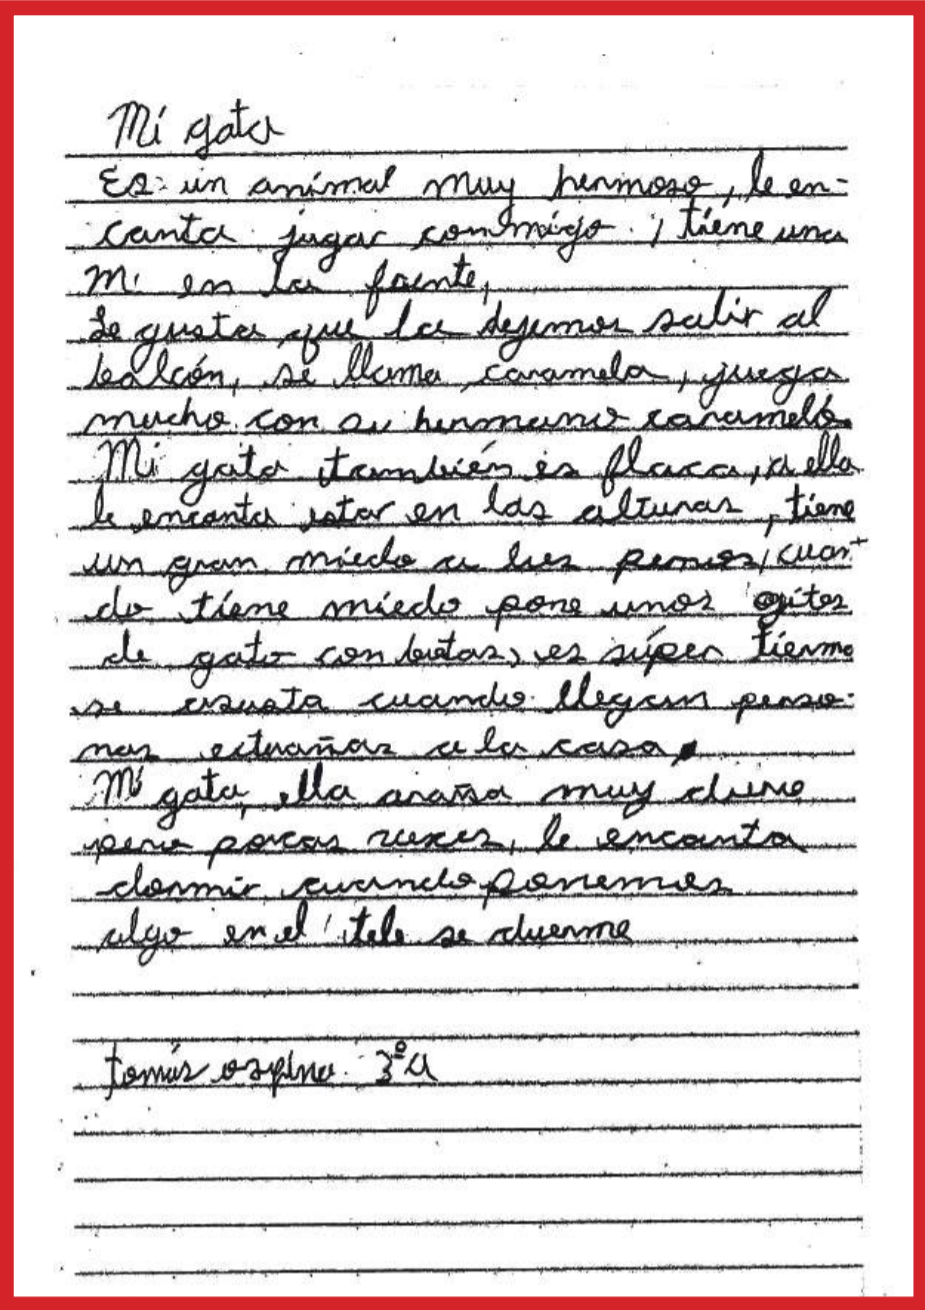 Mi gata
Es un animal muy hermoso, le en-
canta jugar conmigo, tiene una
M en la frente,
Le gusta que la dejemos salir al
balcón, se llama caramela, juega
mucho con su hermano caramelo.
Mi gata también es flaca, a ella
le encanta estar en las alturas, tiene
un gran miedo a los perros, cuan-
do tiene miedo pone unos ogitos
de gato con botas, es súper tierna
se asusta cuando llegan perso-
nas extrañas a la casa.
Mi gata, ella araña muy duro
pero pocas veces, le encanta
dormir, cuando ponemos
algo en el tele se duerme
tomás ospina 3°a